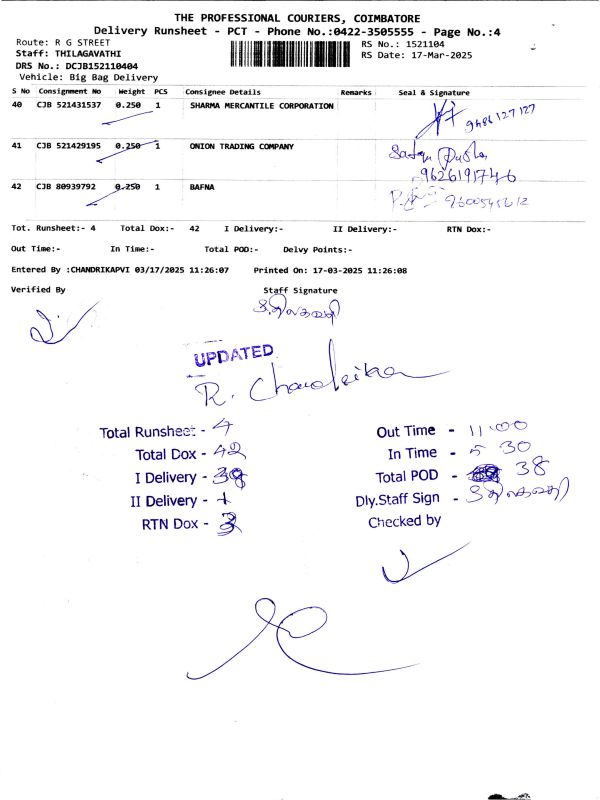 THE PROFESSIONAL COURIERS, COIMBATORE
Delivery Runsheet - PCT - Phone No.:0422-3505555 - Page No.:4
Route: R G STREET
RS No.: 1521104
Staff: THILAGAVATHI
RS Date: 17-Mar-2025
DRS No.: DCJB152110404
Vehicle: Big Bag Delivery
S No Consignment No Weight PCS Consignee Details Remarks Seal & Signature
40 CJB 521431537 0.250 1 SHARMA MERCANTILE CORPORATION
9486127127
41 CJB 521429195 0.250 1 ONION TRADING COMPANY
9626191746
42 CJB 80939792 0.250 1 BAFNA
9600545612
Tot. Runsheet:- 4 Total Dox:- 42 I Delivery:- II Delivery:- RTN Dox:-
Out Time:- In Time:- Total POD:- Delvy Points:-
Entered By :CHANDRIKAPVI 03/17/2025 11:26:07 Printed On: 17-03-2025 11:26:08
Verified By Staff Signature
UPDATED
R. Chandrika
Total Runsheet - 4
Total Dox - 42
I Delivery - 38
II Delivery - 1
RTN Dox - 3
Out Time - 11:00
In Time - 5 30
Total POD - 38
Dly.Staff Sign -
Checked by